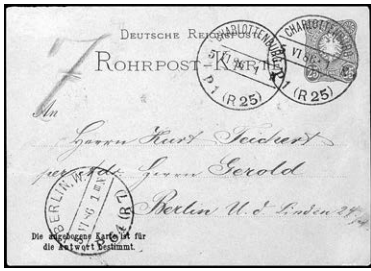 7
DEUTSCHE REICHSPOST
ROHRPOST-KARTE
CHARLOTTENBURG
P. 1 (R 25)
CHARLOTTENBURG
P. 1 (R 25)
25
An
Herrn Kurt Teichert
per adr. Herrn Gerold
Berlin U. d. Linden 24
BERLIN, W.
P 64 (R 7)
Die angebogene Karte ist für
die Antwort bestimmt.